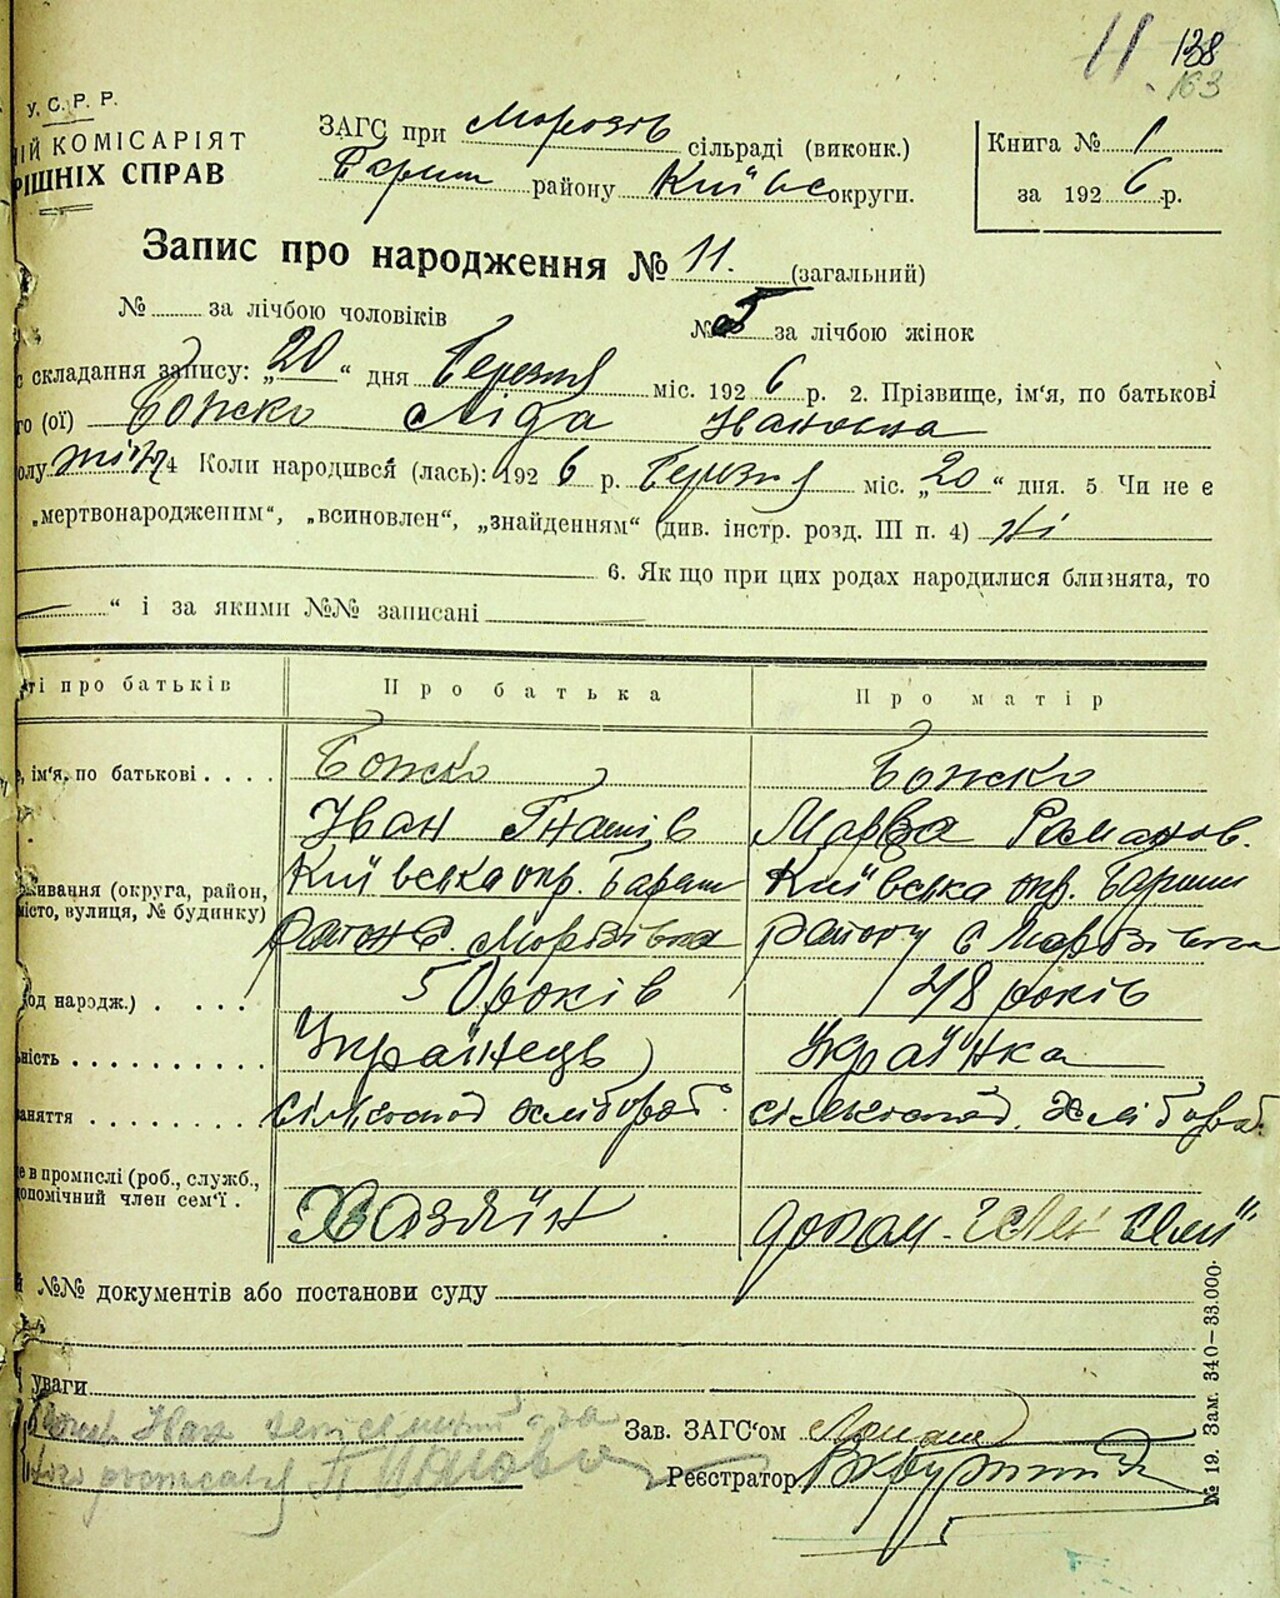 11 138
163
У. С. Р. Р.
ІЙ КОМІСАРІЯТ
РІШНІХ СПРАВ
ЗАГС при Морозів сільраді (виконк.)
Бариш району Київс округи.
Книга № 1
за 1926 р.
Запис про народження № 11. (загальний)
№ за лічбою чоловіків № 5 за лічбою жінок
с складання запису: „20“ дня Березня міс. 1926 р. 2. Прізвище, ім‘я, по батькові
го (ої) Божко Ліда Івановна
олу жін 4 Коли народився (лась): 1926 р. Березня міс. „20“ дня. 5 Чи не є
„мертвонародженим“, „всиновлен“, „знайденням“ (див. інстр. розд. III п. 4) ні
6. Як що при цих родах народилися близнята, то
“ і за якими №№ записані
ті про батьків Про батька Про матір
е, ім‘я, по батькові . . . . Божко Божко
Іван Гнатів Марва Романов.
живання (округа, район, Київська окр. Бариш Київська окр. Бариш
місто, вулиця, № будинку) району с. Морозівка району с Морозівка
од народж.) . . . . 50 років 48 років
ність . . . . . . . . . . Українець Українка
аняття . . . . . . . . сільськогосп. хлібороб. сільськогосп. хлібороб.
е в промислі (роб., служб.,
опомічний член сем‘ї . Хазяїн допом. член сем‘ї
й №№ документів або постанови суду
уваги
Зав. ЗАГС‘ом
Реєстратор
№ 19. Зам. 340—33.000.